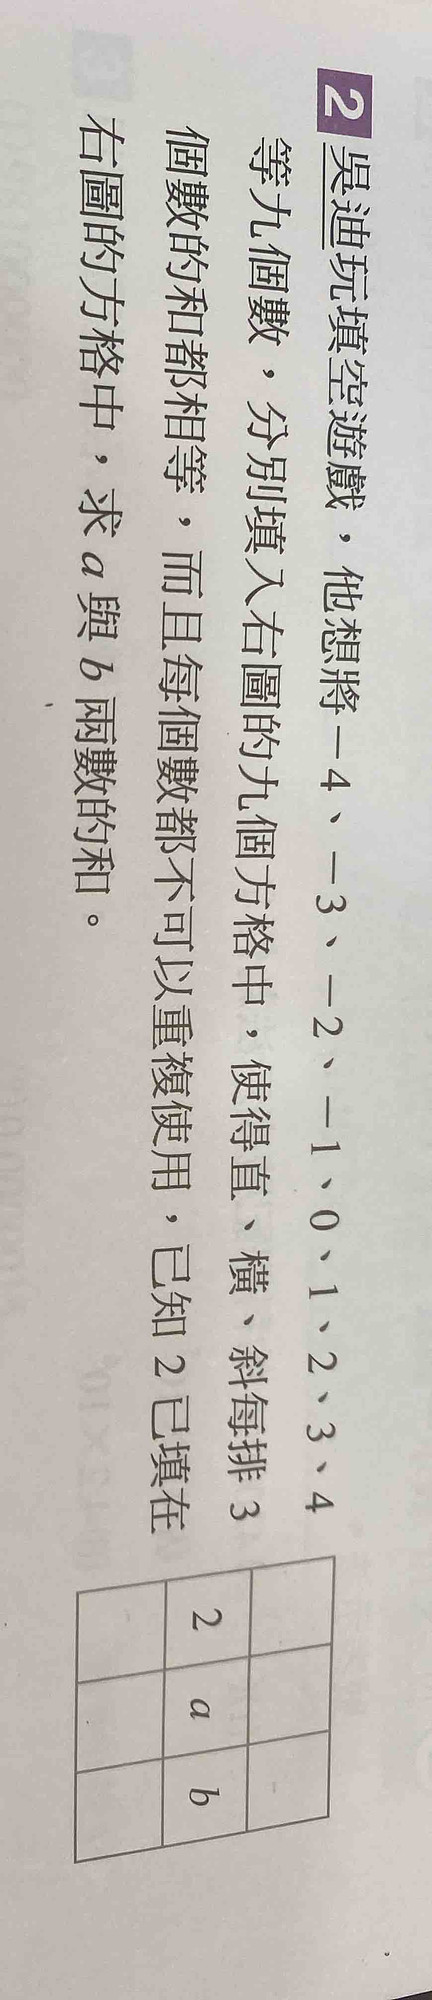 2 吳迪玩填空遊戲，他想將－4、－3、－2、－1、0、1、2、3、4
等九個數，分別填入右圖的九個方格中，使得直、橫、斜每排 3
個數的和都相等，而且每個數都不可以重複使用，已知 2 已填在
右圖的方格中，求 a 與 b 兩數的和。
2 a b